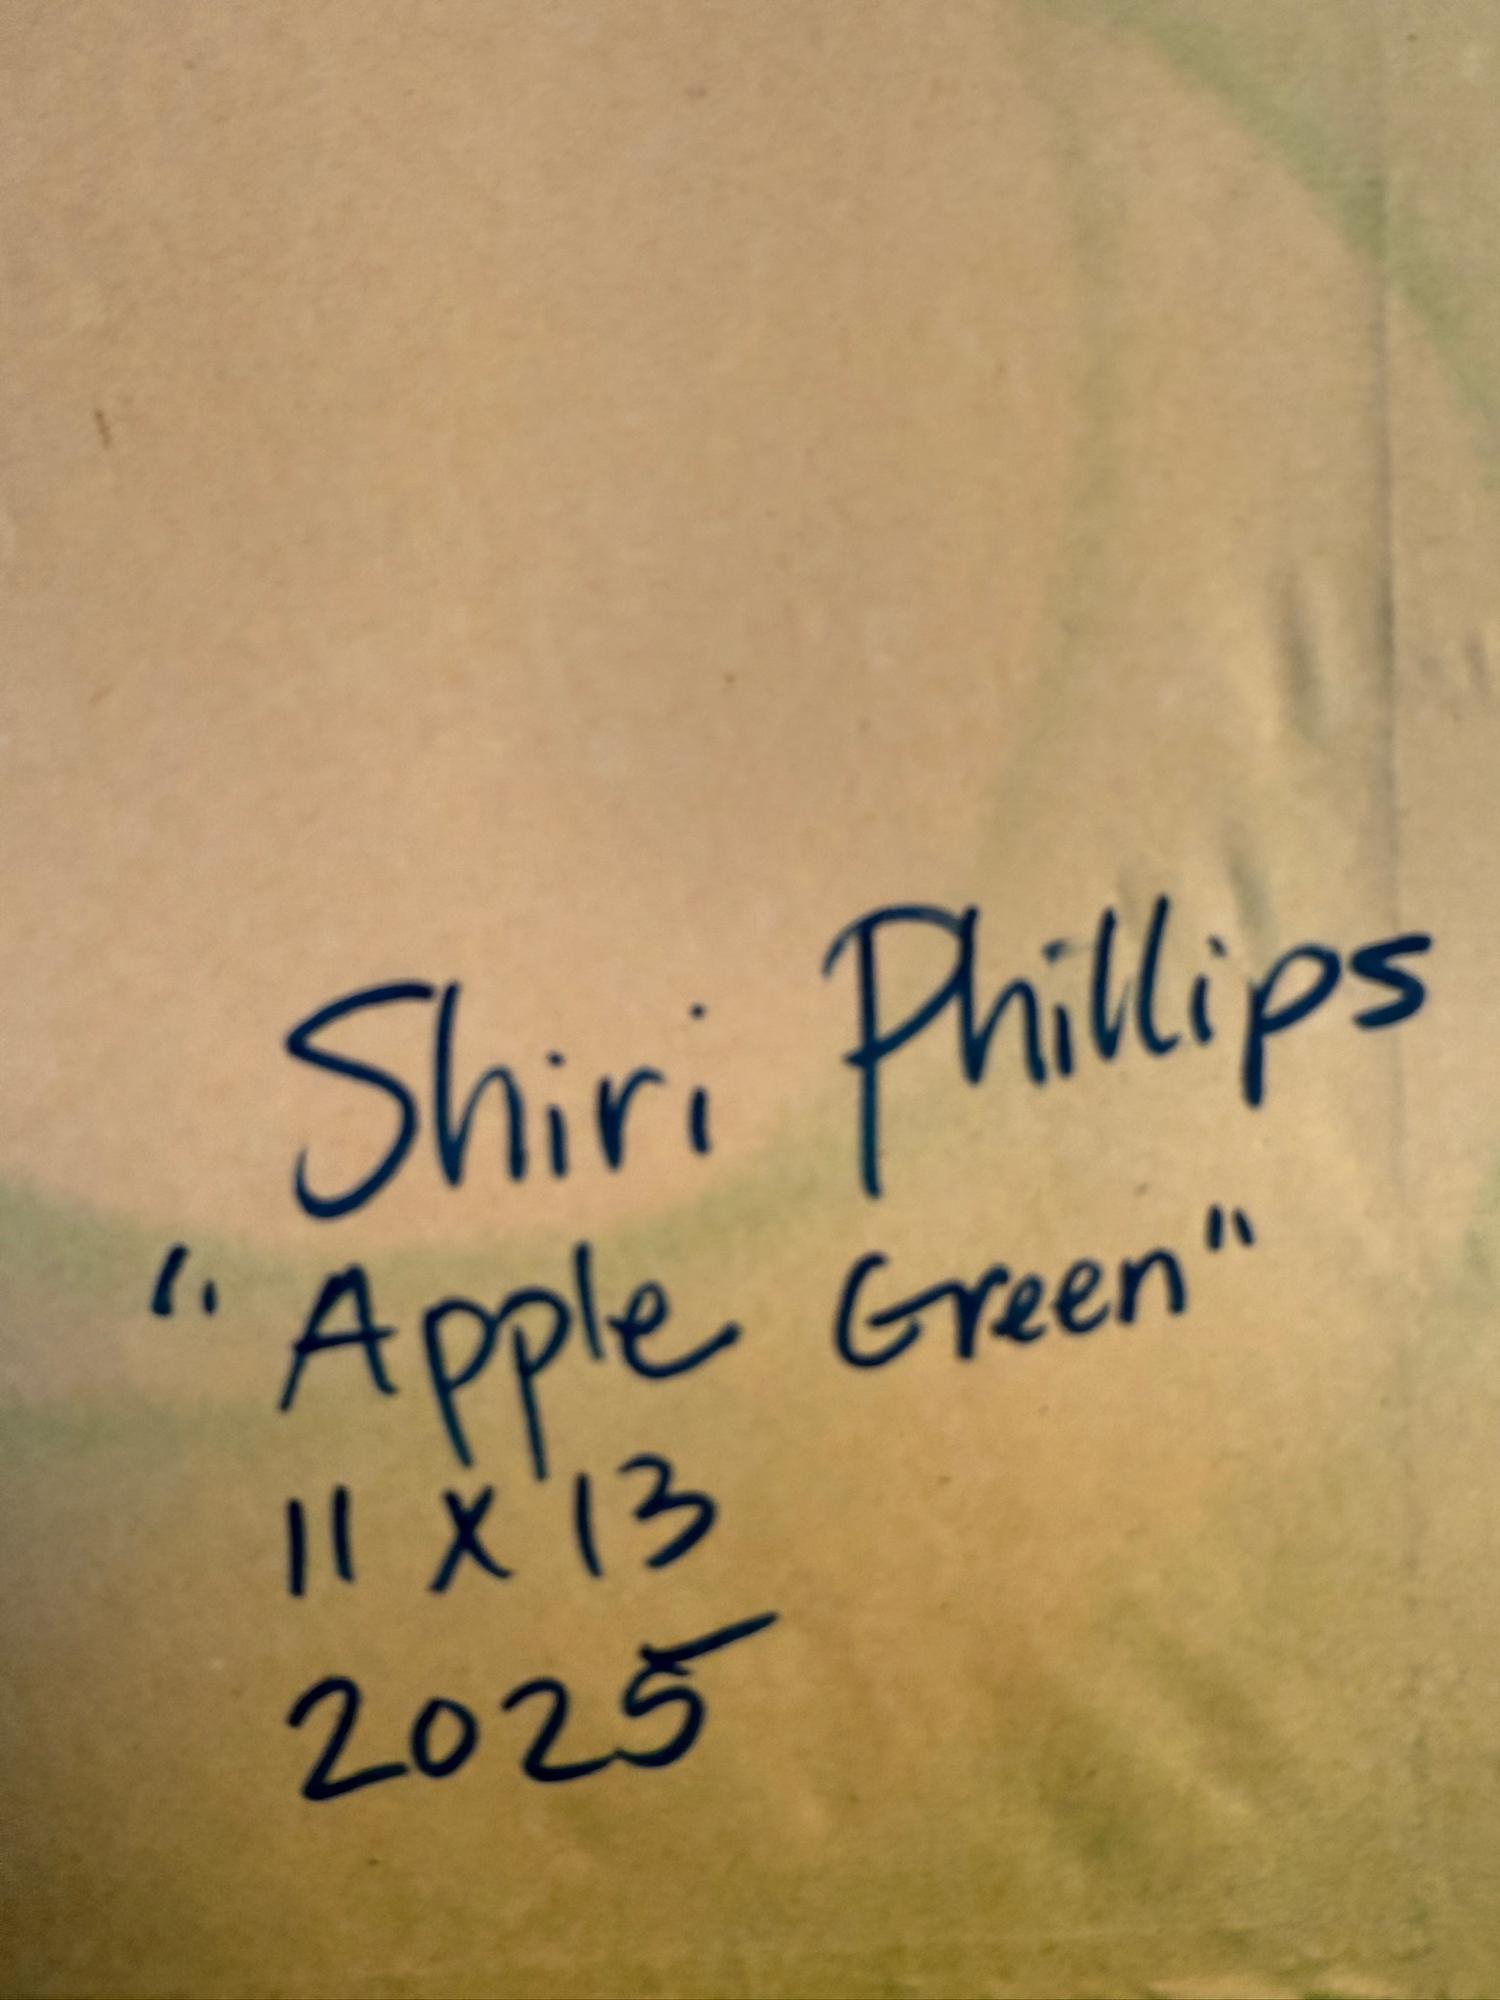 Shiri Phillips
"Apple Green"
11 x 13
2025